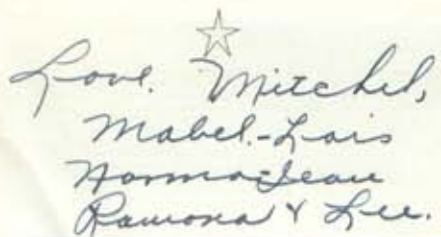 Love. Mitchel,
Mabel.-Lois
Norma-Jean
Ramona & Lee.